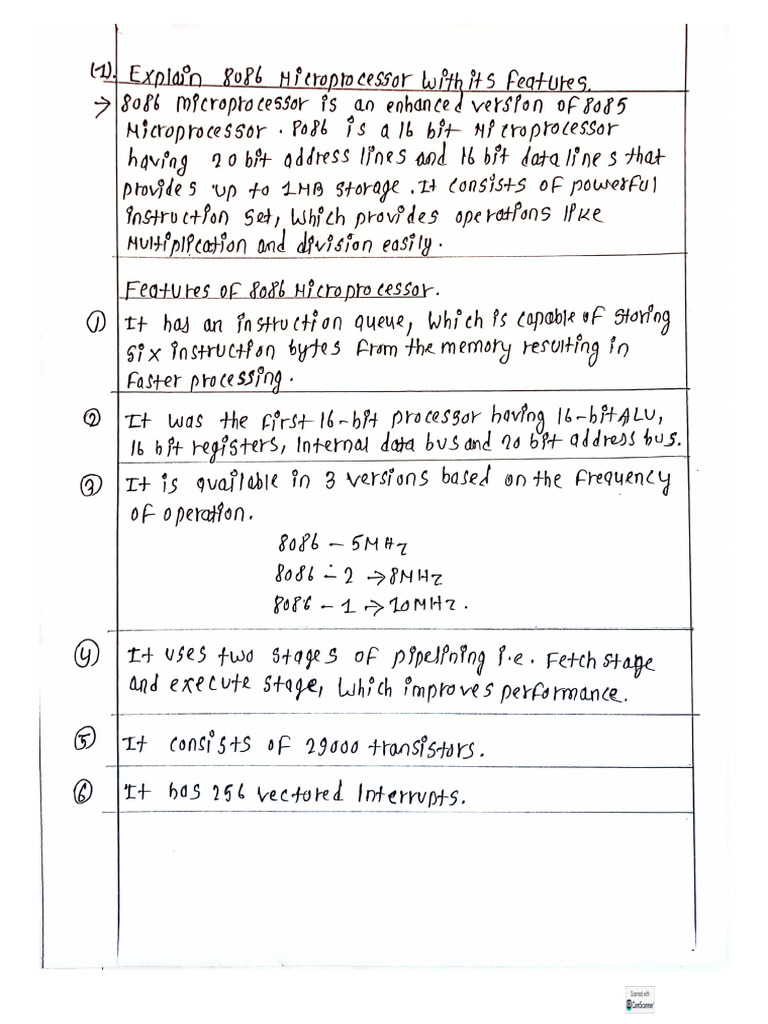 (1). Explain 8086 Microprocessor with its features.
→ 8086 microprocessor is an enhanced version of 8085
Microprocessor. 8086 is a 16 bit Microprocessor
having 20 bit address lines and 16 bit data lines that
provides up to 1MB storage. It consists of powerful
instruction set, which provides operations like
Multiplication and division easily.
Features of 8086 Microprocessor.
① It has an instruction queue, which is capable of storing
six instruction bytes from the memory resulting in
faster processing.
② It was the first 16-bit processor having 16-bit ALU,
16 bit registers, internal data bus and 20 bit address bus.
③ It is available in 3 versions based on the frequency
of operation.
8086 – 5MHz
8086 – 2 → 8MHz
8086 – 1 → 10MHz.
④ It uses two stages of pipelining i.e. Fetch stage
and execute stage, which improves performance.
⑤ It consists of 29000 transistors.
⑥ It has 256 vectored Interrupts.
Scanned with
CamScanner